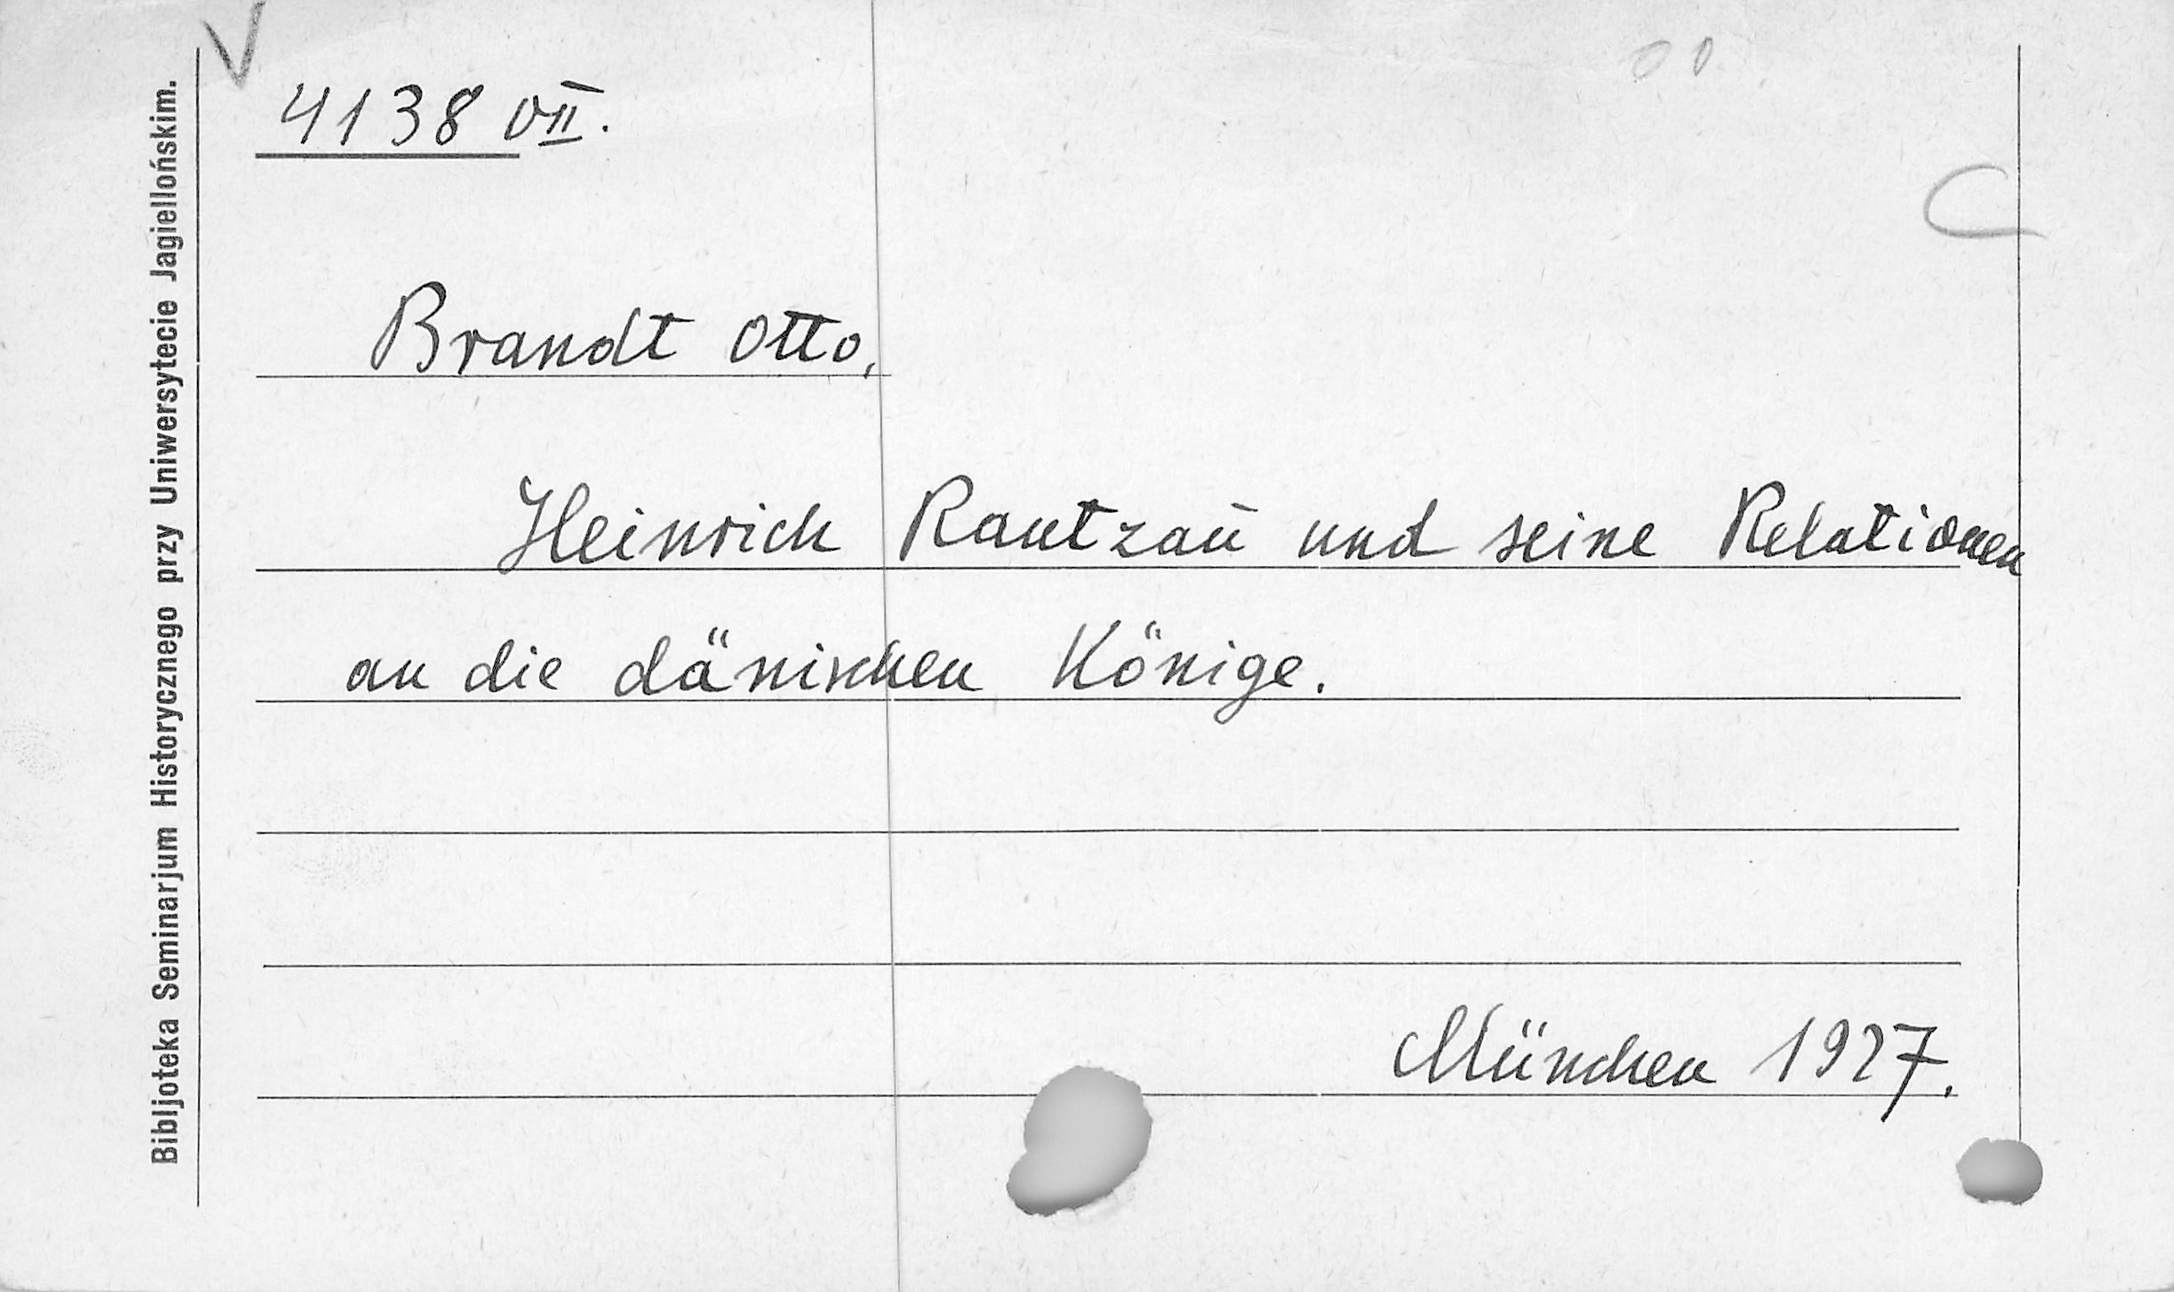 V
4138 VII.
Brandt Otto,
Heinrich Rantzaŭ und seine Relationen
an die dänischen Könige.
München 1927.
Bibljoteka Seminarjum Historycznego przy Uniwersytecie Jagiellońskim.